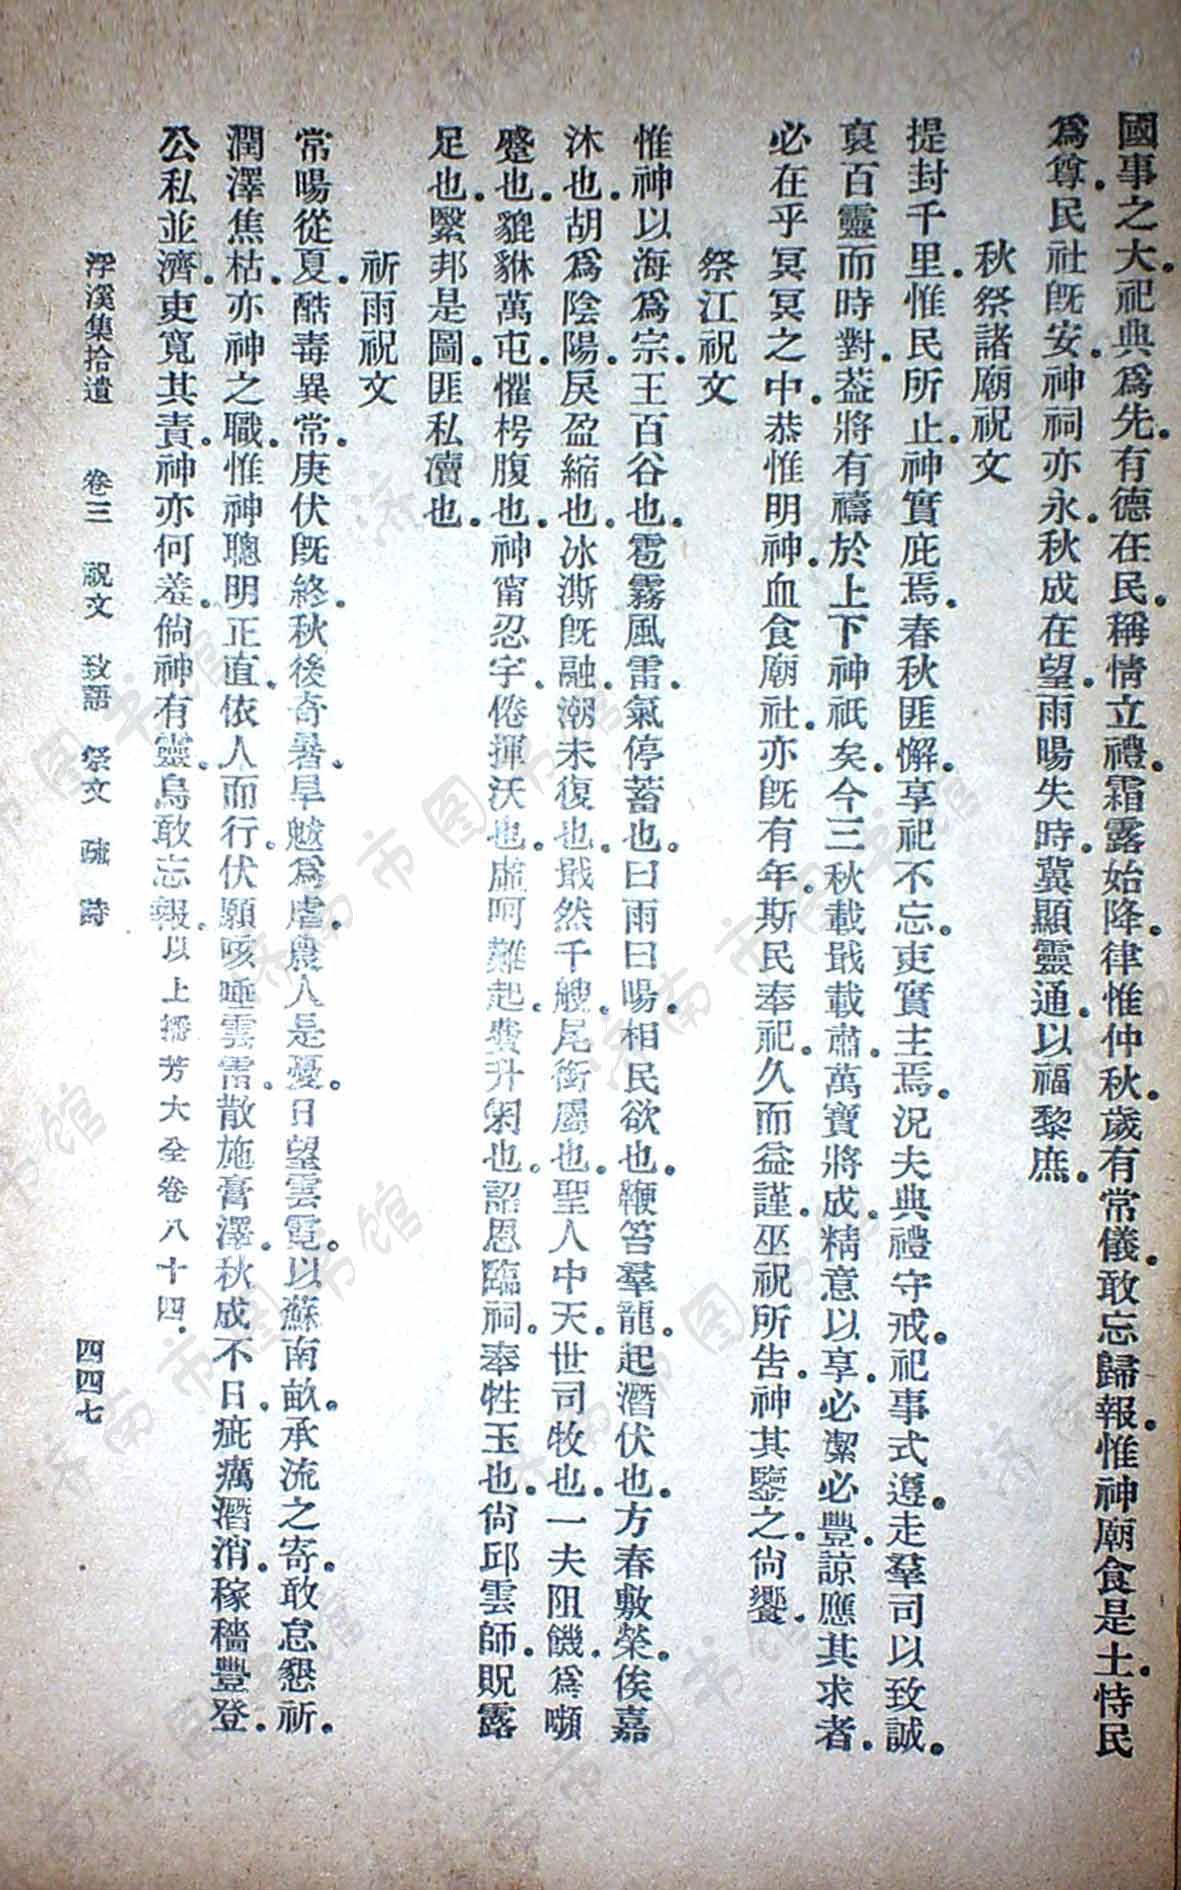 國事之大。祀典爲先。有德在民。稱情立禮。霜露始降。律惟仲秋。歲有常儀。敢忘歸報。惟神廟食是土。恃民
爲尊。民社既安。神祠亦永。秋成在望。雨暘失時。冀顯靈通。以福黎庶。
秋祭諸廟祝文
提封千里。惟民所止。神實庇焉。春秋匪懈。享祀不忘。吏實主焉。況夫典禮守戒。祀事式遵。走羣司以致誠。
裒百靈而時對。葢將有禱於上下神祇矣。今三秋載戢載肅。萬寶將成。精意以享。必潔必豐。諒應其求者。
必在乎冥冥之中。恭惟明神。血食廟社。亦既有年。斯民奉祀。久而益謹。巫祝所告。神其鑒之。尙饗。
祭江祝文
惟神以海爲宗。王百谷也。雹霧風雷。氣停蓄也。曰雨曰暘。相民欲也。鞭笞羣龍。起潛伏也。方春敷榮。俟嘉
沐也。胡爲陰陽。戾盈縮也。冰澌既融。潮未復也。戢然千艘。尾銜屬也。聖人中天。世司牧也。一夫阻饑。爲嚬
蹙也。貔貅萬屯。懼枵腹也。神甯忍字。倦揮沃也。虛呵難起。費升匊也。詔恩臨祠。奉牲玉也。尙邱雲師。貺露
足也。繄邦是圖。匪私瀆也。
祈雨祝文
常暘從夏。酷毒異常。庚伏既終。秋後奇暑。旱魃爲虐。農人是憂。日望雲霓。以蘇南畝。承流之寄。敢怠懇祈。
潤澤焦枯。亦神之職。惟神聰明正直。依人而行。伏願咳唾雲雷。散施膏澤。秋成不日。疵癘潛消。稼穡豐登。
公私並濟。吏寬其責。神亦何羞。倘神有靈。烏敢忘報。以上播芳大全卷八十四。
浮溪集拾遺 卷三 祝文 致語 祭文 疏 詩
四四七
济南市图书馆